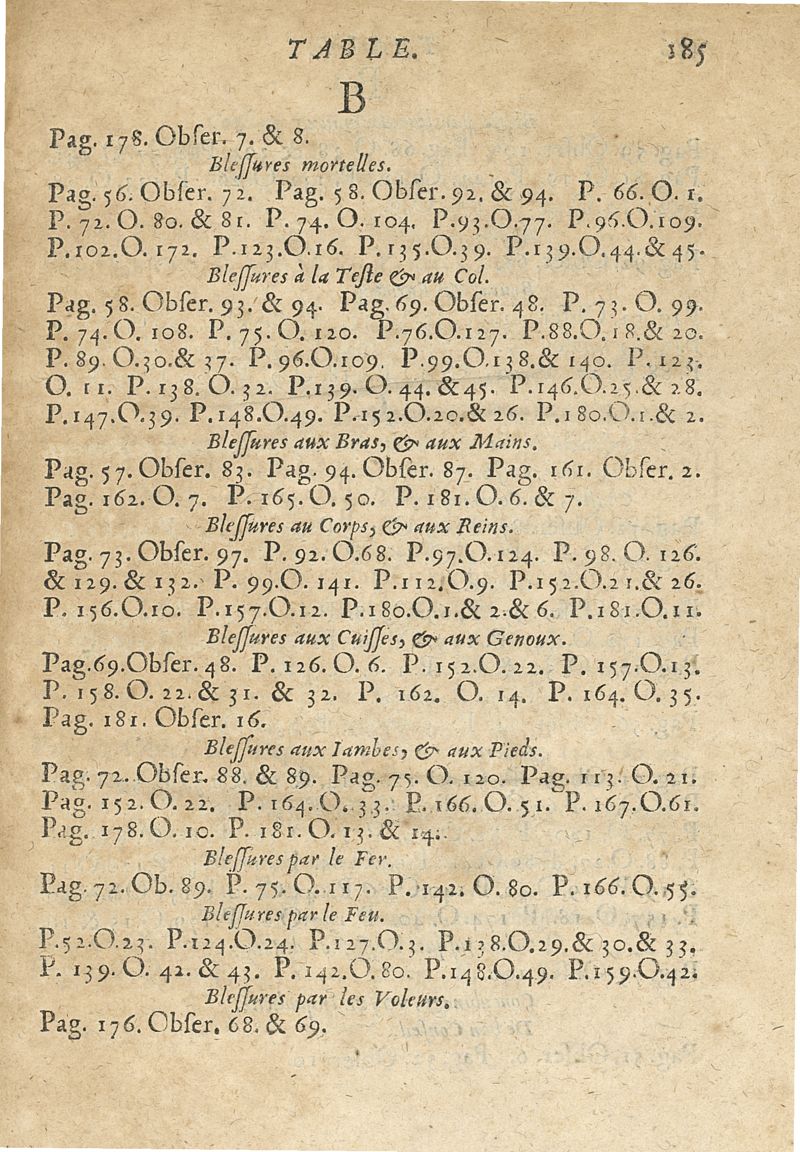 TABLE. 185
B
Pag. 178. Obſer. 7. & 8.
Bleſſures mortelles.
Pag. 56. Obſer. 72. Pag. 58. Obſer. 92. & 94. P. 66. O. 1.
P. 72. O. 80. & 81. P. 74. O. 104. P.93.O.77. P.96.O.109.
P.102.O. 172. P.123.O.16. P.135.O.39. P.139.O.44.& 45.
Bleſſures à la Teſte & au Col.
Pag. 58. Obſer. 93. & 94. Pag. 69. Obſer. 48. P. 73. O. 99.
P. 74. O. 108. P. 75. O. 120. P.76.O.127. P.88.O.18.& 20.
P. 89. O.30.& 37. P. 96.O.109. P.99.O.138.& 140. P. 123.
O. 11. P. 138. O. 32. P.139. O. 44. &45. P.146.O.25.& 28.
P.147.O.39. P.148.O.49. P.152.O.20.& 26. P.180.O.1.& 2.
Bleſſures aux Bras, & aux Mains.
Pag. 57. Obſer. 83. Pag. 94. Obſer. 87. Pag. 161. Obſer. 2.
Pag. 162. O. 7. P. 165. O. 50. P. 181. O. 6. & 7.
Bleſſures au Corps, & aux Reins.
Pag. 73. Obſer. 97. P. 92. O.68. P.97.O.124. P. 98. O. 126.
& 129. & 132. P. 99.O. 141. P.112.O.9. P.152.O.21.& 26.
P. 156.O.10. P.157.O.12. P.180.O.1.& 2.& 6. P.181.O.11.
Bleſſures aux Cuiſſes, & aux Genoux.
Pag.69.Obſer. 48. P. 126. O. 6. P. 152.O. 22. P. 157.O.13.
P. 158. O. 22. & 31. & 32. P. 162. O. 14. P. 164. O. 35.
Pag. 181. Obſer. 16.
Bleſſures aux Iambes, & aux Pieds.
Pag. 72. Obſer. 88. & 89. Pag. 75. O. 120. Pag. 113. O. 21.
Pag. 152. O. 22. P. 164. O. 33. P. 166. O. 51. P. 167.O.61.
Pag. 178. O. 10. P. 181. O. 13. & 14.
Bleſſures par le Fer.
Pag. 72. Ob. 89. P. 75. O. 117. P. 142. O. 80. P. 166. O. 55.
Bleſſures par le Feu.
P.52.O.23. P.124.O.24. P.127.O.3. P.138.O.29.& 30.& 33.
P. 139. O. 42. & 43. P. 142.O.80. P.148.O.49. P.159.O.42.
Bleſſures par les Voleurs.
Pag. 176. Obſer. 68. & 69.